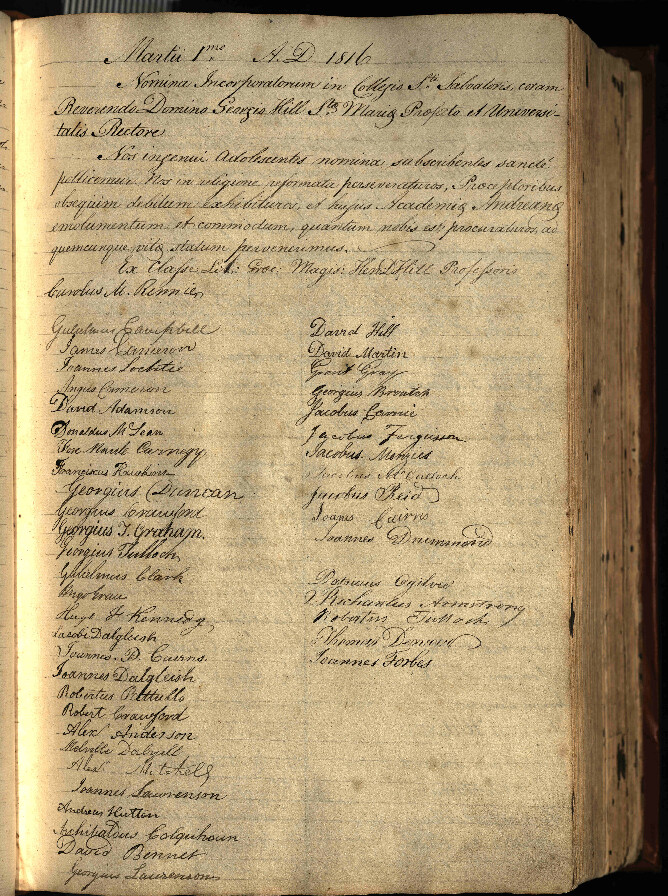 Martii 1mo A.D 1816
Nomina Incorporatorum in Collegio Sti Salvatoris, coram
Reverendo Domino Georgio Hill Stæ Mariæ Præfecto et Universi-
tatis Rectore
Nos ingenui Adolescentes nomina subscribentes sancte
pollicemur Nos in religione reformata perseveraturos, Præceptoribus
obsequium debitum exhibituros, et hujus Academiæ Andreanæ
emolumentum et commodum, quantum nobis est procuraturos, ad
quemcunque vitæ statum pervenerimus.
Ex Classe Lit: Græc: Magis: Hend. Hill Professoris
Carolus M. Rennie
Gulielmus Campbell
James Cameron
Joannes
Angus Cameron
David Adamson
Donaldus McLean
Maule Carnegy
Franciscus
Georgius Duncan
Georgius Crawford
Georgius T. Graham.
Georgius Tulloch
Gulielmus Clark
Hugo
Hugh F Kennedy
Jacobi Dalgleish
Joannes B. Cairns
Joannes Dalgleish
Robertus Pattullo
Robert Crawford
Alexr Anderson
Melville Dalyell
Alexr Mitchell
Joannes Lawrenson
Andreas Hutton
Archibaldus Colquhoun
David Bennet
Georgius Laurenson
David Hill
David Martin
Grant Gray
Georgius
Jacobus
Jacobus Fergusson
Jacobus Menzies
Jacobus McCulloch
Jacobus Reid
Joannes Cairns
Joannes Drummond
Patricius Ogilvie
Armstrong
Robertus Tulloch
Thomas
Joannes Forbes